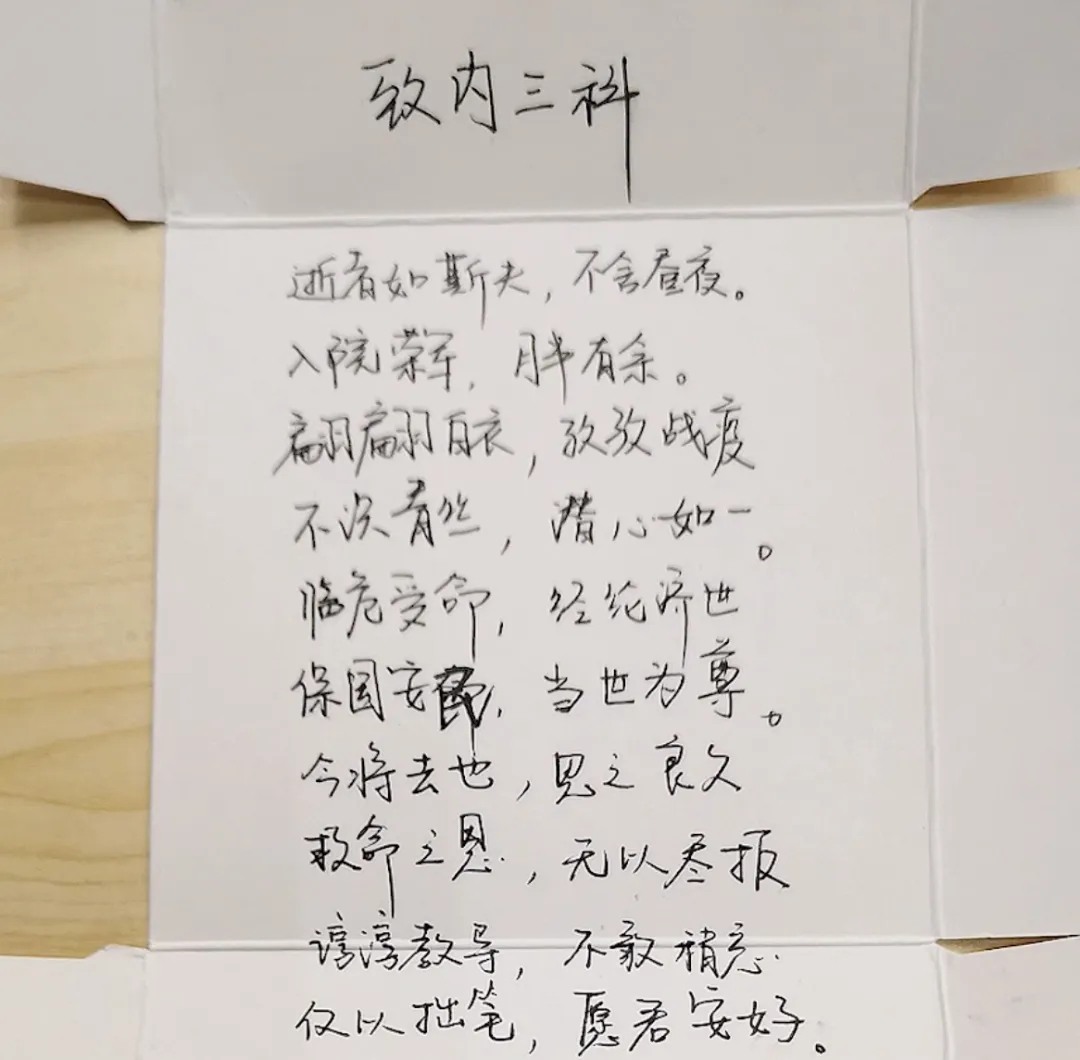 致内三科
逝者如斯夫，不舍昼夜。
入院荣军，月半有余。
翩翩白衣，孜孜战疫
不沢青丝，潜心如一。
临危受命，经纶济世
保国安民，当世为尊。
今将去也，思之良久
救命之恩，无以尽报
谆谆教导，不敢稍忘
仅以拙笔，愿君安好。